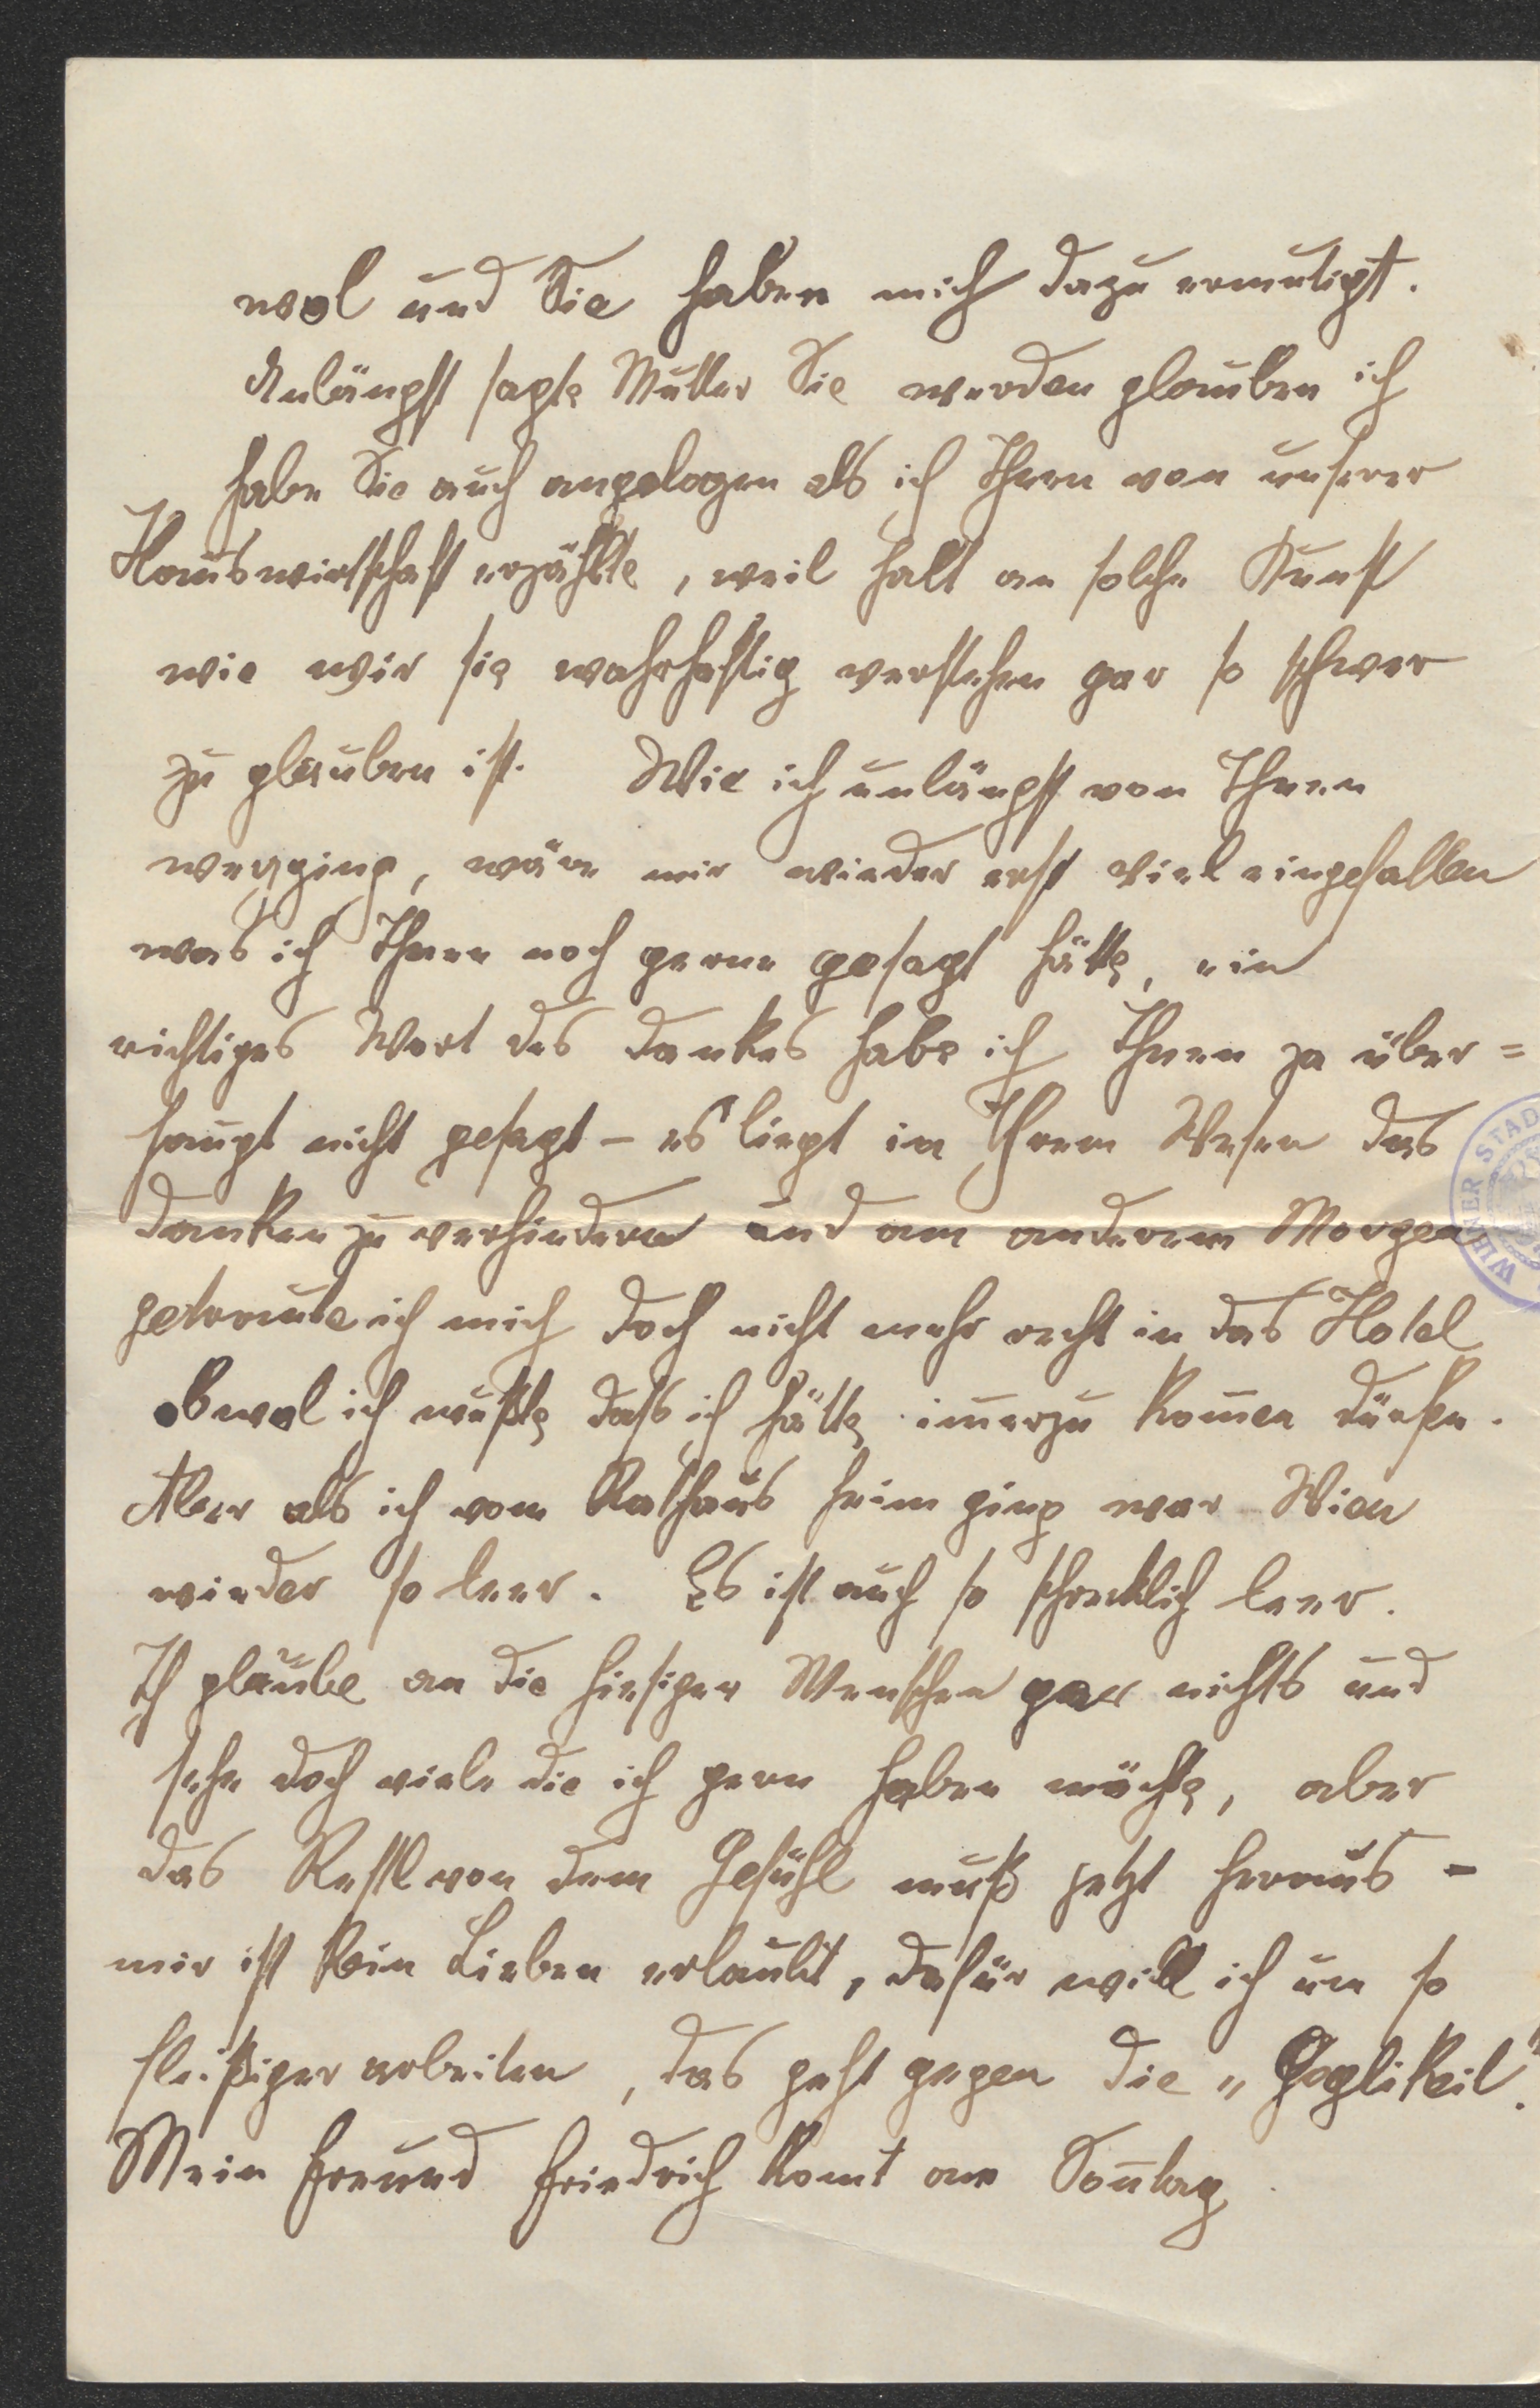 wol und Sie haben mich dazu ermutigt.
Unlängst sagte Mutter Sie werden glauben ich
habe Sie auch angelogen als ich Ihnen von unserer
Hauswirtschaft erzählte, weil halt an solche Kunst
wie wir sie wahrhaftig verstehen gar so schwer
zu glauben ist. Wie ich unlängst von Ihnen
wegging, wäre mir wieder erst viel eingefallen
was ich Ihnen noch gerne gesagt hätte, ein
richtiges Wort des Dankes habe ich Ihnen ja über=
haupt nicht gesagt – es liegt in Ihrem Wesen das
Danken zu verhindern und am anderem Morgen
getraute ich mich doch nicht mehr recht in das Hotel
obwol ich wußte dass ich hätte im̅erzu kom̅en dürfen.
Aber als ich vom Rathaus heim ging war Wien
wieder so leer. Es ist auch so schrecklich leer.
Ich glaube an die hiesigen Menschen gar nichts und
sehe doch viele die ich gern haben möchte, aber
das Restl von dem Gefühl muß jetzt heraus –
mir ist kein Lieben erlaubt, dafür will ich um so
fleißiger arbeiten, das geht gegen die „Goglikeit".
Mein Freund Friedrich kom̅t am Son̅tag
WIENER STAD